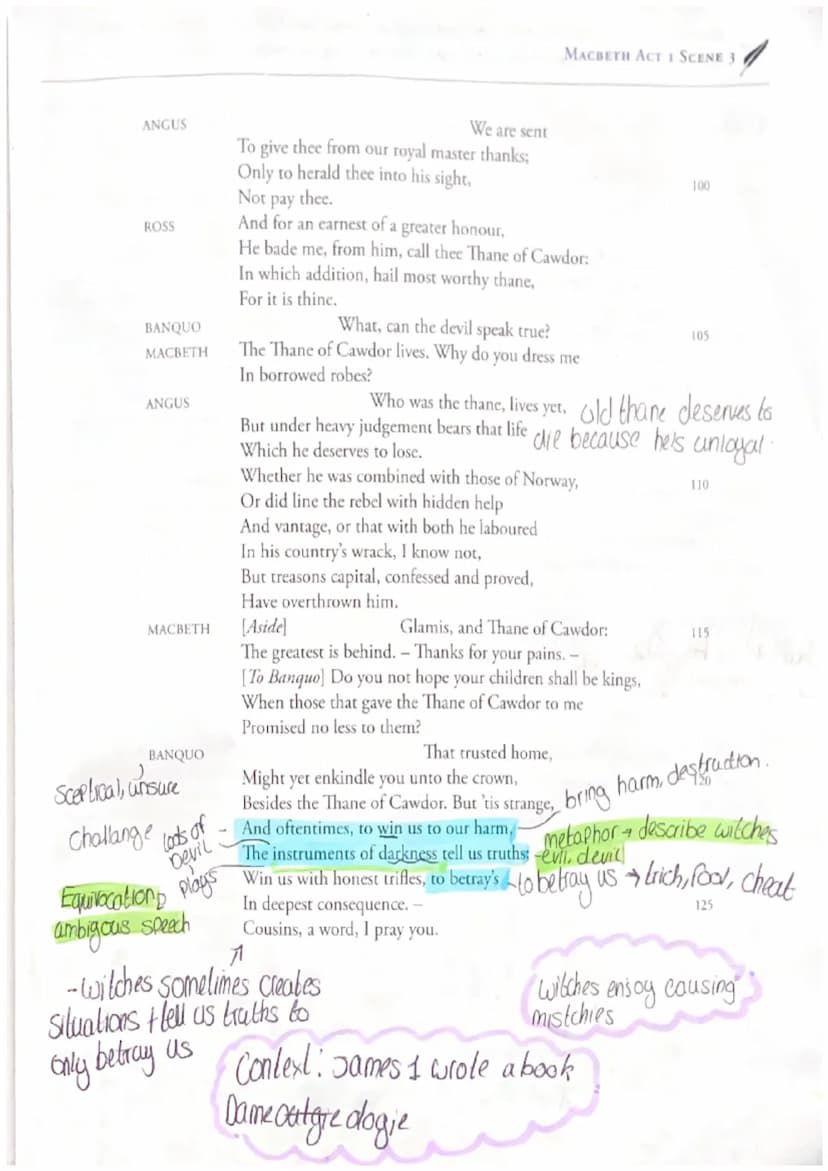 MACBETH ACT 1 SCENE 3
ANGUS We are sent
To give thee from our royal master thanks;
Only to herald thee into his sight, 100
Not pay thee.
ROSS And for an earnest of a greater honour,
He bade me, from him, call thee Thane of Cawdor:
In which addition, hail most worthy thane,
For it is thine.
BANQUO What, can the devil speak true? 105
MACBETH The Thane of Cawdor lives. Why do you dress me
In borrowed robes?
ANGUS Who was the thane, lives yet,
But under heavy judgement bears that life
Which he deserves to lose.
old thane deserves to
die because he's unloyal.
Whether he was combined with those of Norway, 110
Or did line the rebel with hidden help
And vantage, or that with both he laboured
In his country's wrack, I know not,
But treasons capital, confessed and proved,
Have overthrown him.
MACBETH [Aside] Glamis, and Thane of Cawdor: 115
The greatest is behind. – Thanks for your pains. –
[To Banquo] Do you not hope your children shall be kings,
When those that gave the Thane of Cawdor to me
Promised no less to them?
BANQUO That trusted home,
Might yet enkindle you unto the crown, 120
Besides the Thane of Cawdor. But 'tis strange,
And oftentimes, to win us to our harm,
The instruments of darkness tell us truths;
Win us with honest trifles, to betray's
In deepest consequence. – 125
Cousins, a word, I pray you.
sceptical, unsure
challange
lots of
Devil
plays
Equivocation
ambigous speech
bring harm, destruction.
metaphor → describe witches
-evil, devil
to betray us → trich, fool, cheat
-witches sometimes creates
situations + tell us truths to
only betray us
witches enjoy causing
mistchies
Context: James 1 wrote a book